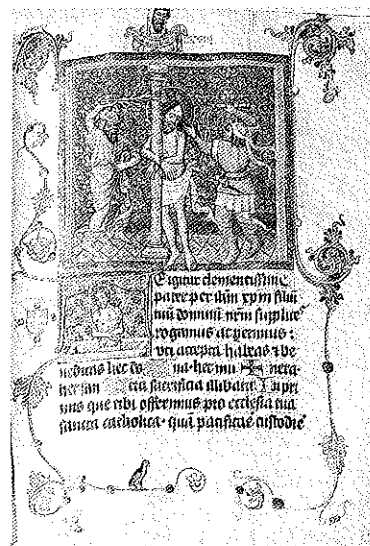 E igitur clementissime
pater per ihm xpm filiu
tuu dominu nrm supplice
rogamus ac petimus :
uti accepta habeas et be
nedicas hec do na. hec mu nera.
hec san cta sacrificia illibata. In pri
mis que tibi offerimus pro ecclesia tua
sancta catholica. quā pacificare custodire